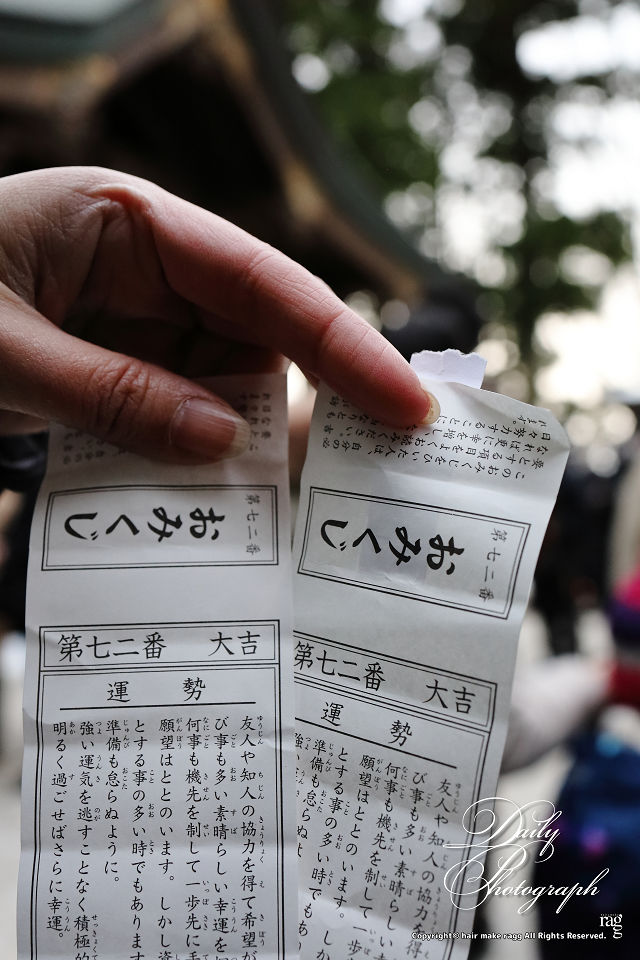 おみくじ
第七二番
第七二番 大吉
運勢
友人や知人の協力を得て希望が
び事も多い素晴らしい幸運を
何事も機先を制して一歩先に手
願望はととのいます。しかし
とする事の多い時でもあります
準備も怠らぬように。
強い運気を逃すことなく積極的
明るく過ごせばさらに幸運。
このおみくじをひいた人は、自分の必
要とする項目を
なれば更に幸を増し
日々努力することに
れます。
第七二番
おみくじ
第七二番 大吉
運勢
友人や知人の協力
び事も多い素晴らし
何事も機先を制して一歩
願望はととのいます。
とする事の多い時でも
準備も怠らぬよ
強い
Daily
Photograph
ragg
Copyright© hair make ragg All Rights Reserved.